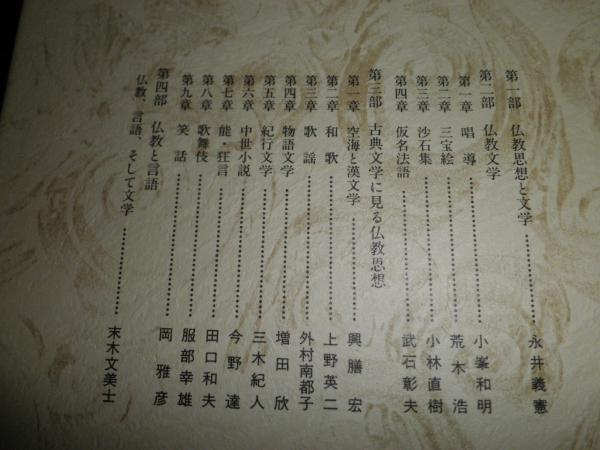 第一部　仏教思想と文学…………永井義憲
第二部　仏教文学
第一章　唱　導…………小峯和明
第二章　三宝絵…………荒木　浩
第三章　沙石集…………小林直樹
第四章　仮名法語…………武石彰夫
第三部　古典文学に見る仏教思想
第一章　空海と漢文学…………興膳　宏
第二章　和　歌…………上野英二
第三章　歌　謡…………外村南都子
第四章　物語文学…………増田　欣
第五章　紀行文学…………三木紀人
第六章　中世小説…………今野　達
第七章　能・狂言…………田口和夫
第八章　歌舞伎…………服部幸雄
第九章　笑　話…………岡　雅彦
第四部　仏教と言語
仏教、言語、そして文学…………末木文美士